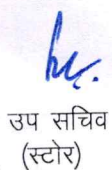 उप सचिव
(स्टोर)